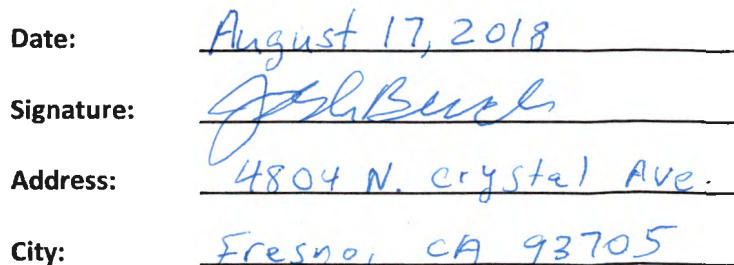 Date: August 17, 2018
Signature: Josh
Address: 4804 N. Crystal Ave.
City: Fresno, CA 93705